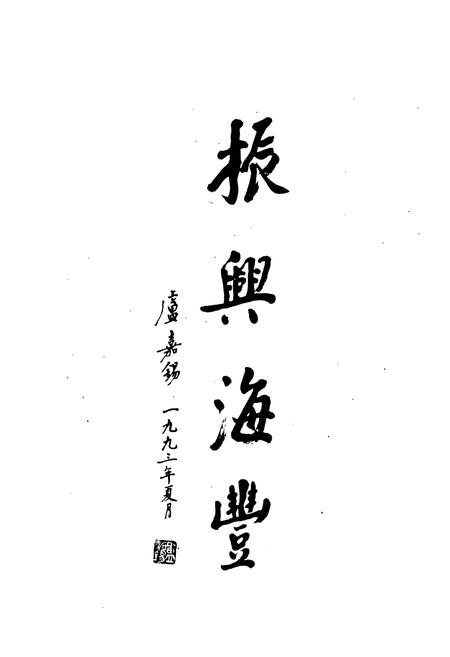 振興海豐
盧嘉錫 一九九三年夏月